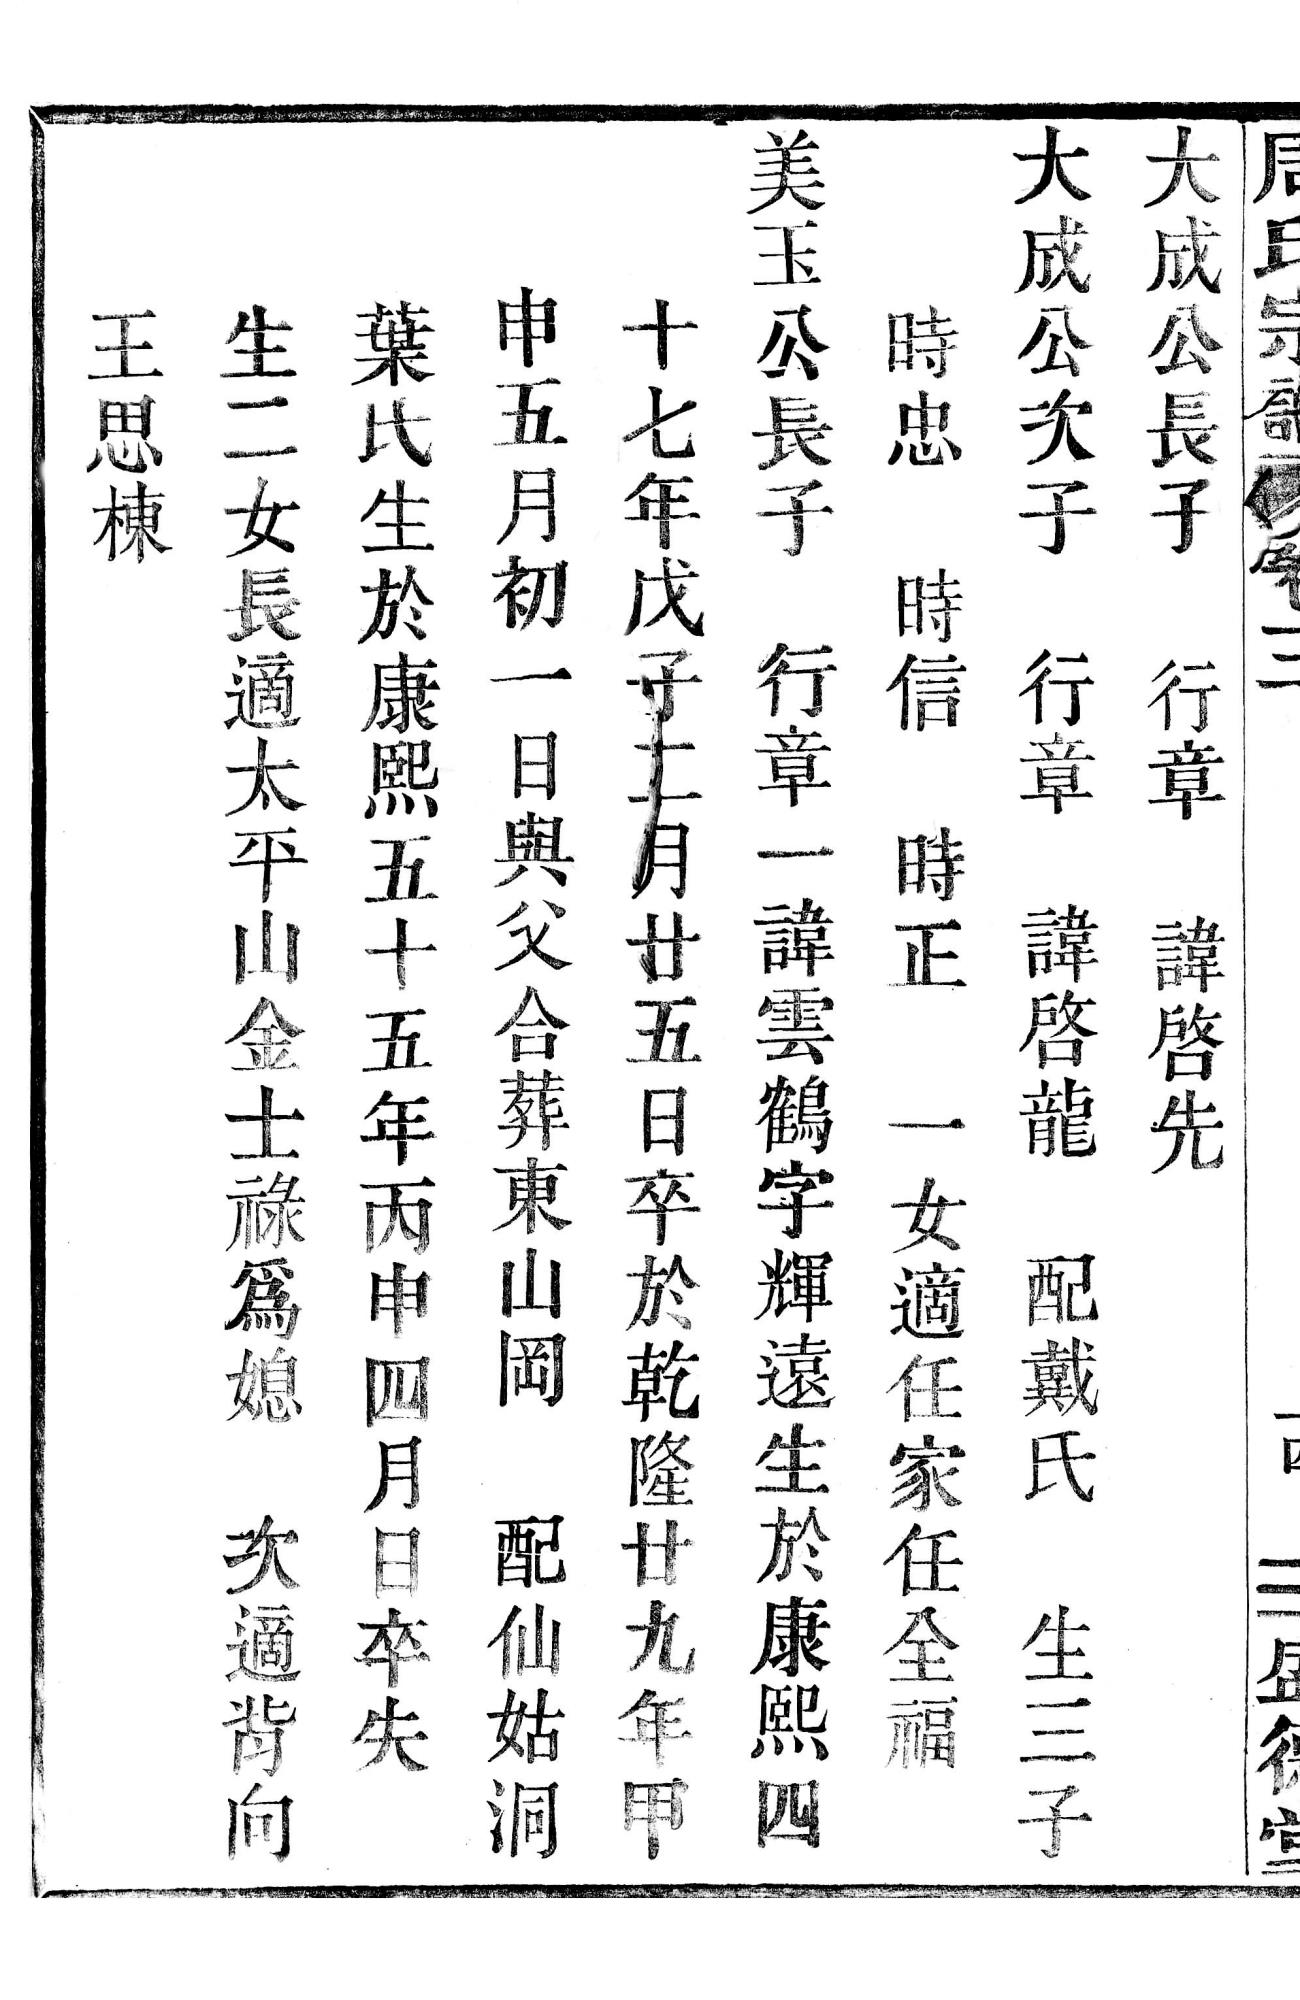 周氏宗譜 卷三 十四 三 盛德堂
大成公長子 行章 諱啓先
大成公次子 行章 諱啓龍 配戴氏 生三子
時忠 時信 時正 一女適任家任全福
美玉公長子 行章一諱雲鶴字輝遠生於康熙四
十七年戊子十一月廿五日卒於乾隆廿九年甲
申五月初一日與父合葬東山岡 配仙姑洞
葉氏生於康熙五十五年丙申四月日卒失
生二女長適太平山金士祿爲媳 次適背向
王思棟